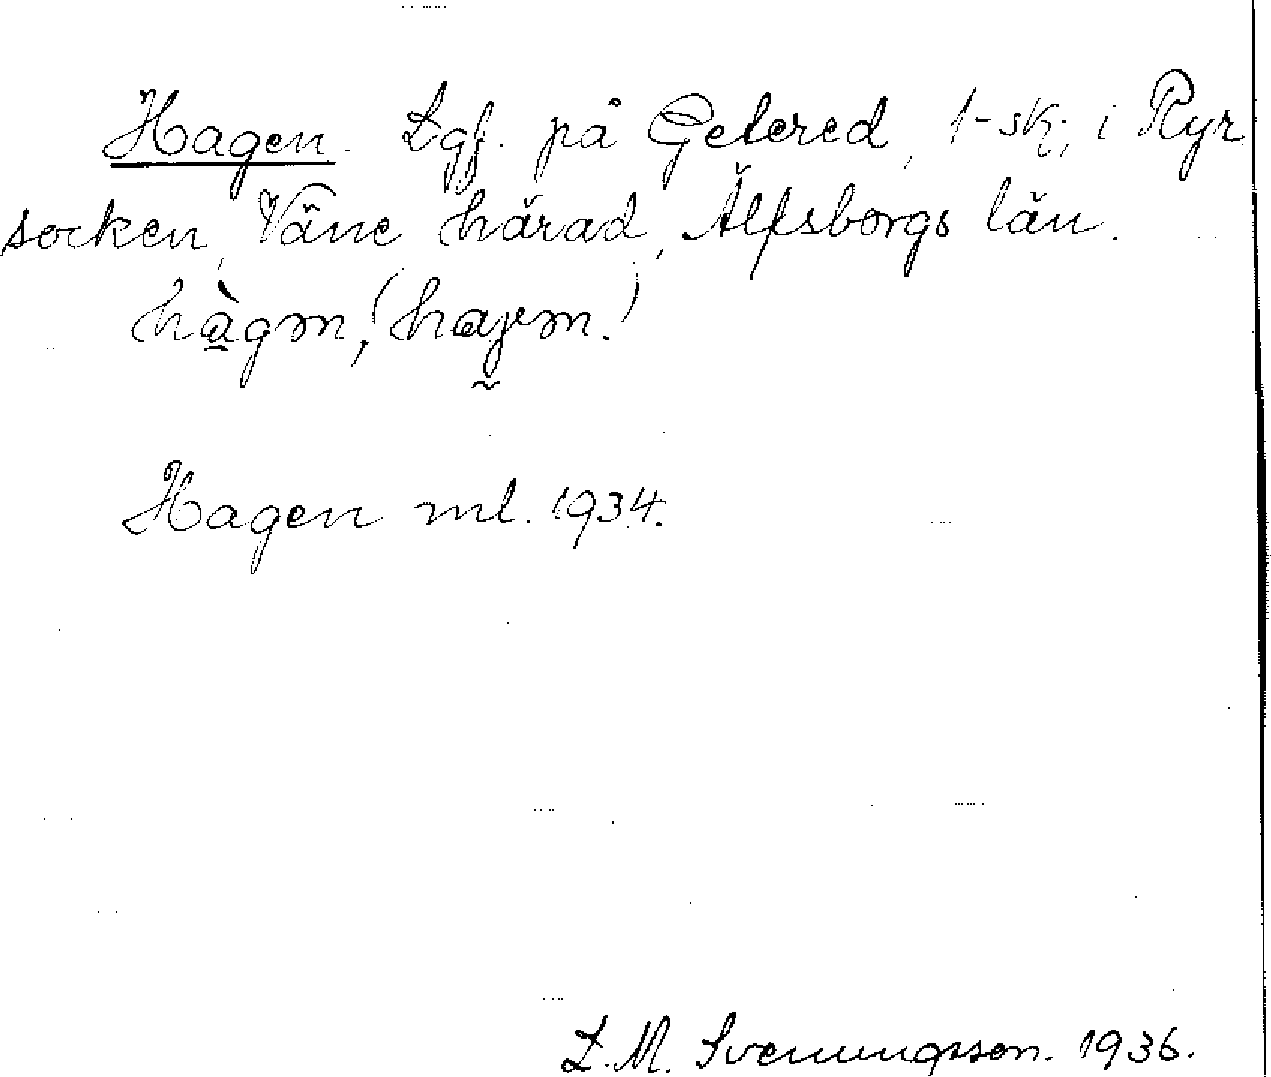 Hagen. Lgf. på Getered, 1-sk., i Ryr
socken, Väne härad, Älfsborgs län.
hàgən, (hajen.)
Hagen ml. 1934.
L. M. Svenungsson. 1936.